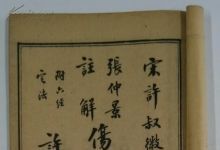 宋許叔微
張仲景
註解傷
附六經
定法